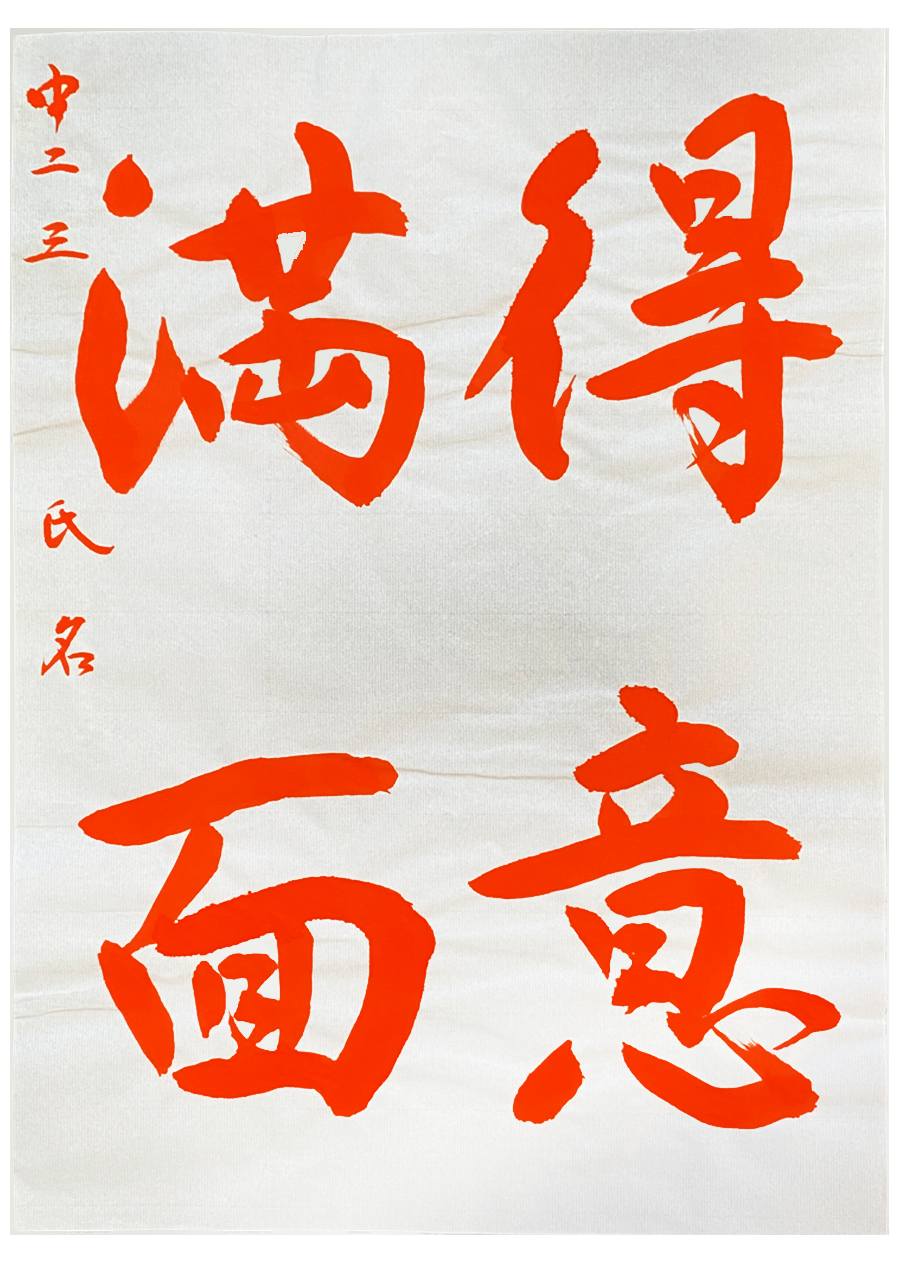 得意
満面
中二 三 氏名